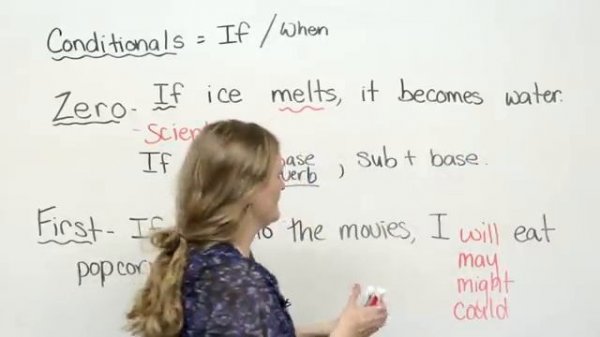 Conditionals = If / When
Zero - If ice melts, it becomes water.
- Scien
If base verb, sub + base.
First - If to the movies, I will eat
may
popcor
might
could